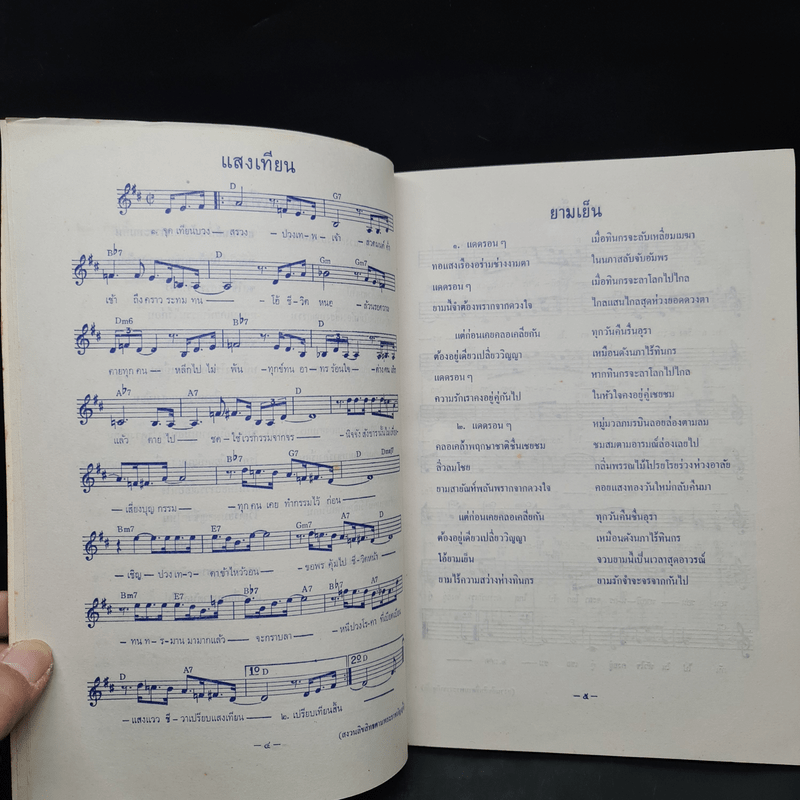 แสงเทียน
D G7
๑. จุดเทียนบวง — สรวง — ปวงเทพ — เจ้า —
B♭7 D Gm Gm7
เช้า ถึงคราว ระทม ทน — โอ้ ชีวิต หนอ —
Dm6 B♭7 D
ตายทุกคน — หลีกไป ไม่ พ้น — ทุกข์ทน อา — ทร ร้อนใจ —
A♭7 A7 D
แล้ว ตาย ไป — ชด — ใช้เวรกรรมจากจร —
B♭7 G7 D Dmaj7
— เสี่ยงบุญ กรรม — ทุกคน เคย ทำกรรมไว้ ก่อน —
Bm7 E7 Gm7 A7 D
— เชิญ — ปวงเทว — ดาข้าไหว้วอน — ขอพร คุ้มไป ชีวิตหน้า —
Bm7 E7 B♭7 A7 B♭7 A7
— ทน ท — รมาน มามากแล้ว — จะกราบลา —
D A7 1º D 2º D
— แสงแวว ชี — วาเปรียบแสงเทียน — ๒. เปรียบเทียนสิ้น
— ๔ —
ยามเย็น
๑. แดดรอน ๆ เมื่อทินกรจะลับเหลี่ยมเมฆา
ทอแสงเรืองอร่ามช่างงามตา ในนภาสลับจับอัมพร
แดดรอน ๆ เมื่อทินกรจะลาโลกไปไกล
ยามนี้จำต้องพรากจากดวงใจ ไกลแสนไกลสุดห่วงยอดดวงตา
แต่ก่อนเคยคลอเคลียกัน ทุกวันคืนรื่นอุรา
ต้องอยู่เดียวเปลี่ยววิญญา เหมือนดังนภาไร้ทินกร
แดดรอน ๆ หากทินกรจะลาโลกไปไกล
ความรักเราคงอยู่คู่กันไป ในหัวใจคงอยู่คู่เชยชม
๒. แดดรอน ๆ หมู่มวลภมรบินลอยล่องตามลม
คลอเคล้าพฤกษาชาติชื่นเชยชม ชมสมตามอารมณ์ล่องเลยไป
ลิ่วลมโชย กลิ่นพรรณไม้โปรยโรยร่วงห่วงอาลัย
ยามสายัณห์พลันพรากจากดวงใจ คอยแสงทองวันใหม่กลับคืนมา
แต่ก่อนเคยคลอเคลียกัน ทุกวันคืนชื่นอุรา
ต้องอยู่เดียวเปลี่ยววิญญา เหมือนดังนภาไร้ทินกร
โอ้ยามเย็น จวบยามนี้เป็นเวลาสุดอาวรณ์
ยามไร้ความสว่างห่างทินกร ยามรักจำจะจรจากกันไป
— ๕ —